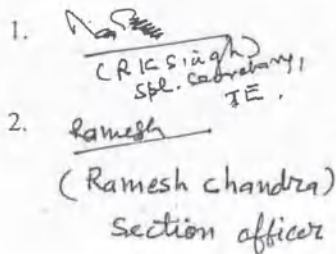 1.
(R K Singh)
Spl. Secretary,
IE.
2. Ramesh
(Ramesh chandra)
Section officer